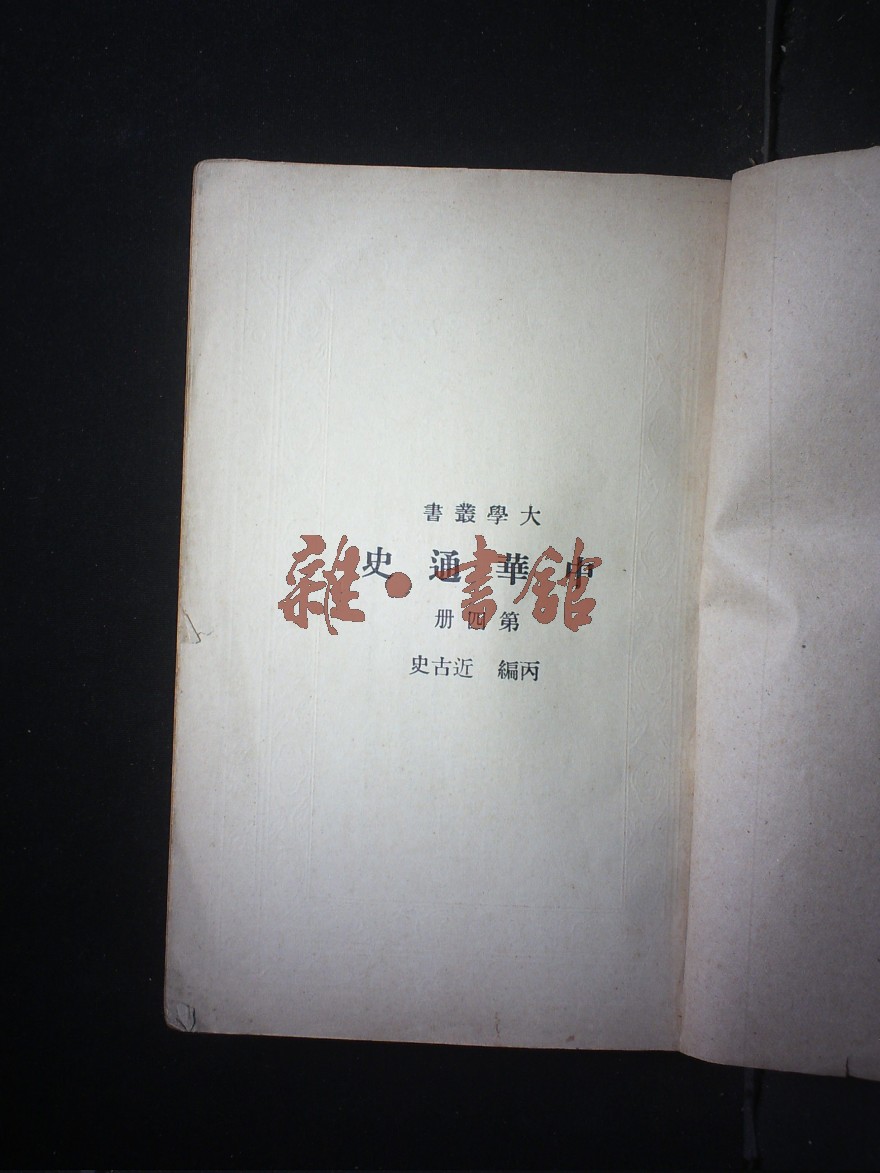 大學叢書
中華通史
第四册
丙編 近古史
雜·書館